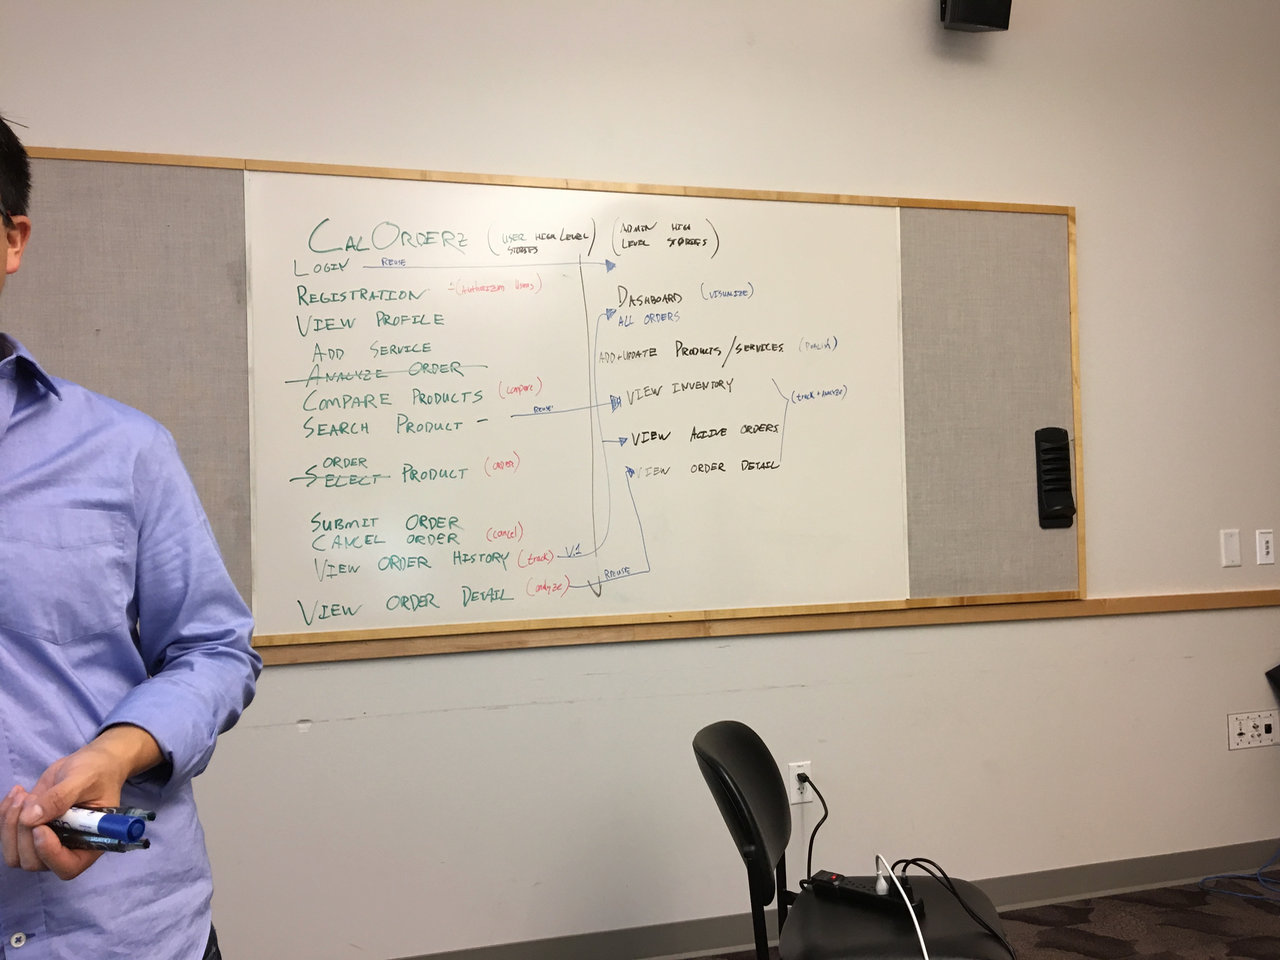 CALORDERZ (USER HIGH LEVEL STORIES) (ADMIN HIGH LEVEL STORIES)
LOGIN REUSE
REGISTRATION - (AUTHORIZED USERS)
VIEW PROFILE
ADD SERVICE
ANALYZE ORDER
COMPARE PRODUCTS (compare)
SEARCH PRODUCT - REUSE
ORDER
SELECT PRODUCT (order)
SUBMIT ORDER
CANCEL ORDER (cancel)
VIEW ORDER HISTORY (track) V.1
VIEW ORDER DETAIL (analyze) REUSE
DASHBOARD (VISUALIZE)
ALL ORDERS
ADD+UPDATE PRODUCTS/SERVICES (PUBLISH)
VIEW INVENTORY
(track + analyze)
VIEW ACTIVE ORDERS
VIEW ORDER DETAIL